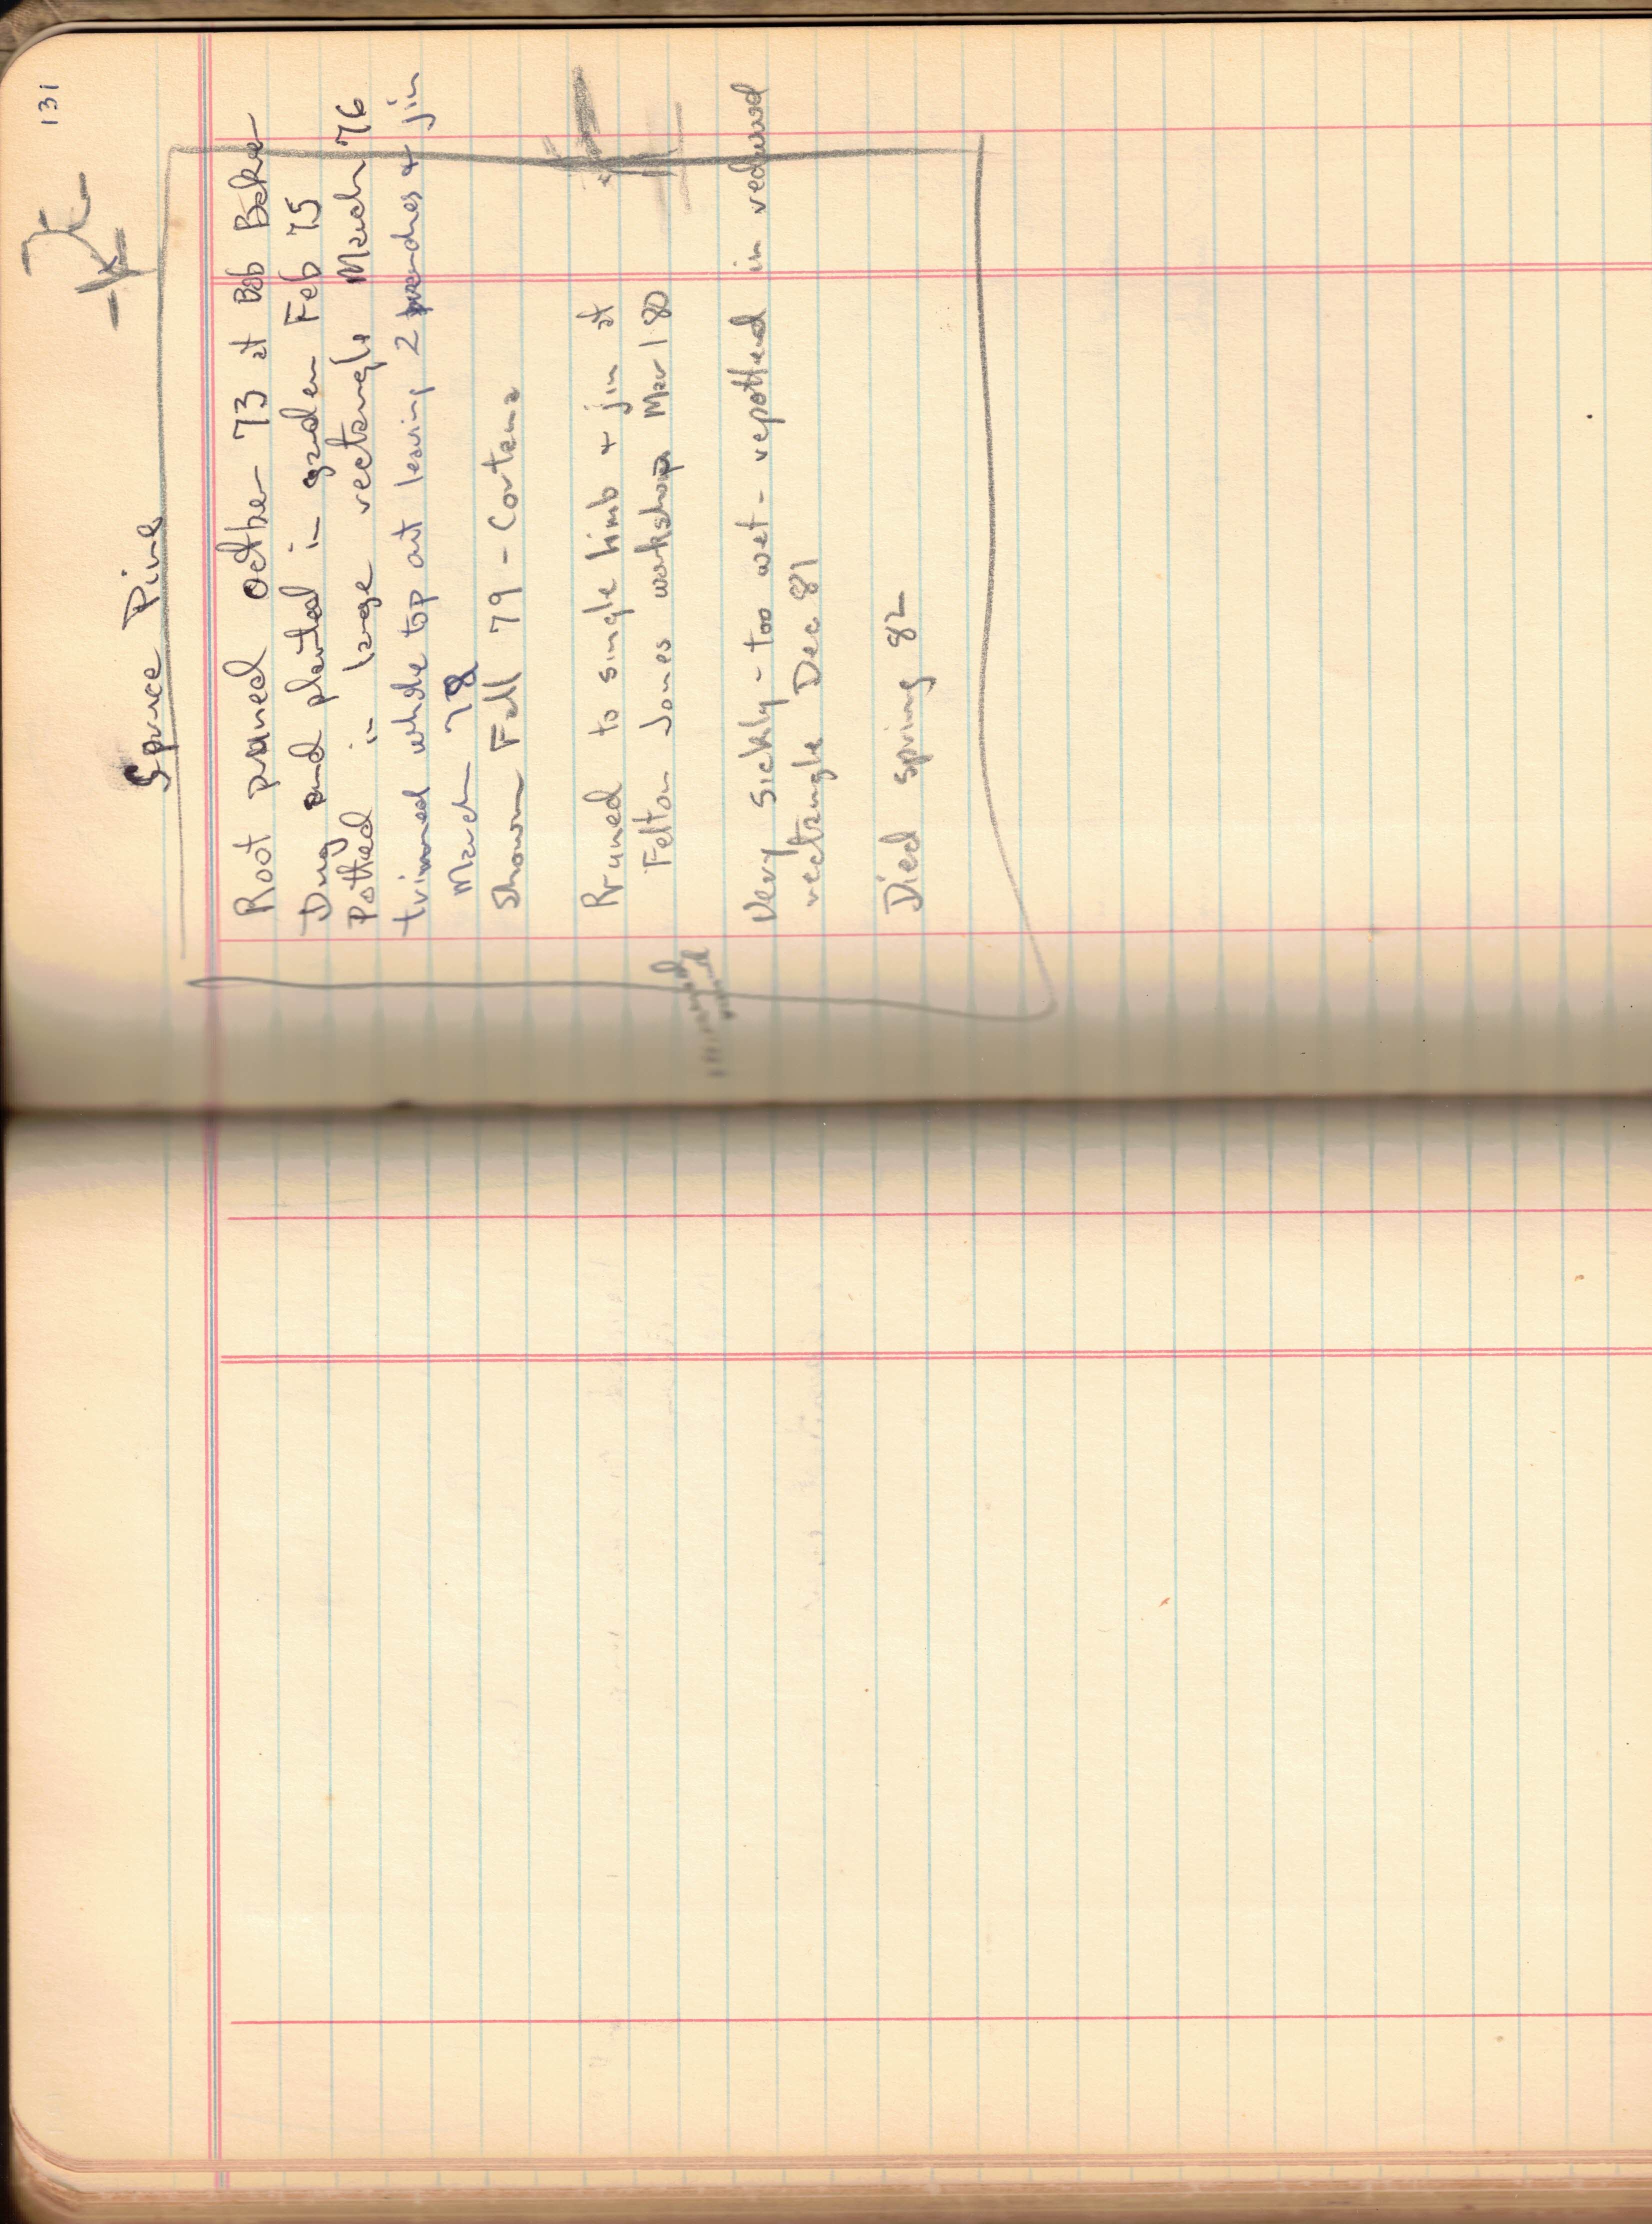 131
Spruce Pine
Root pruned octber 73 at Bob Baker
Dug and planted in garden Feb 75
Potted in large rectangle March 76
trimmed whole top out leaving 2 branches & jin
March 78
Shown Fall 79 - Cortana
Pruned to single limb & jin at
Felton Jones workshop Mar 1 80
Very sickly - too wet - repotted in redwood
rectangle Dec 81
Died spring 82